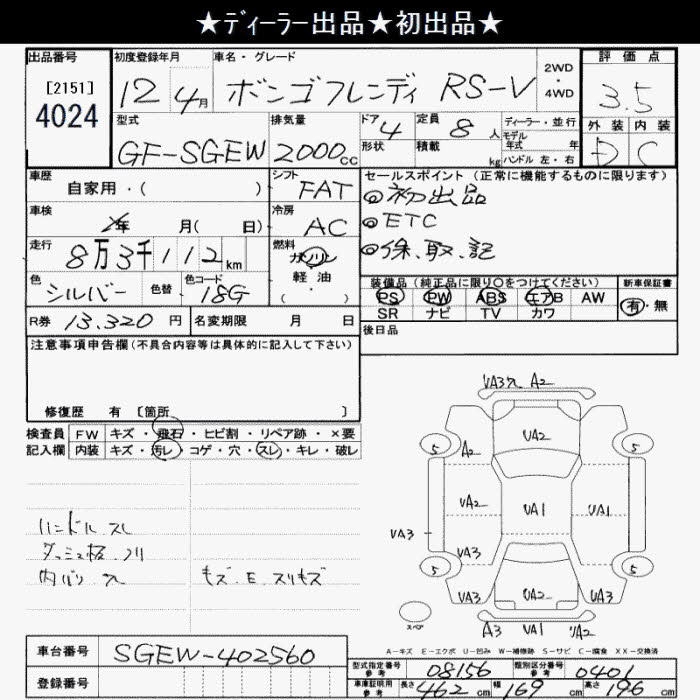 ★ディーラー出品★初出品★
出品番号 初度登録年月 車名・グレード 2WD・4WD 評価点
[2151]
4024
12 4月 ボンゴフレンディ RS-V 3.5
型式 排気量 ドア 形状 定員 積載 ディーラー・並行 外装 内装
GF-SGEW 2000cc 4 8人 kg モデル年式 年 ハンドル 左・右 D C
車歴 シフト セールスポイント(正常に機能するものに限ります)
自家用・( ) FAT ◎初出品
車検 年 月( 日) 冷房 AC ◎ETC
走行 8万3千112km 燃料 ガソリン 軽油 ・( ) ◎保.取.記
色 シルバー 色替 色コード 18G
装備品(純正品に限り○をつけてください) 新車保証書
PS PW ABS エアB AW 有・無
SR ナビ TV カワ
R券 13,320円 名変期限 月 日 後日品
注意事項申告欄(不具合内容等は具体的に記入して下さい)
修復歴 有 [箇所 ]
検査員 FW キズ・飛石・ヒビ割・リペア跡・×要
記入欄 内装 キズ・汚レ・コゲ・穴・スレ・キレ・破レ
ハンドル スレ
内バリ キズ.E.スリキズ
A2
UA2
5 A2 5
UA2 UA1 UA1
UA3
UA3
5 5
UA3 UA2 UA3
スペア A3 UA1
A-キズ E-エクボ U-凹み W-補修跡 S-サビ C-腐食 XX-交換済
車台番号 SGEW-402560
登録番号
型式指定番号 参考 08156 類別区分番号 参考 0401
車庫証明用 参考 長さ 462cm 幅 169cm 高さ 196cm